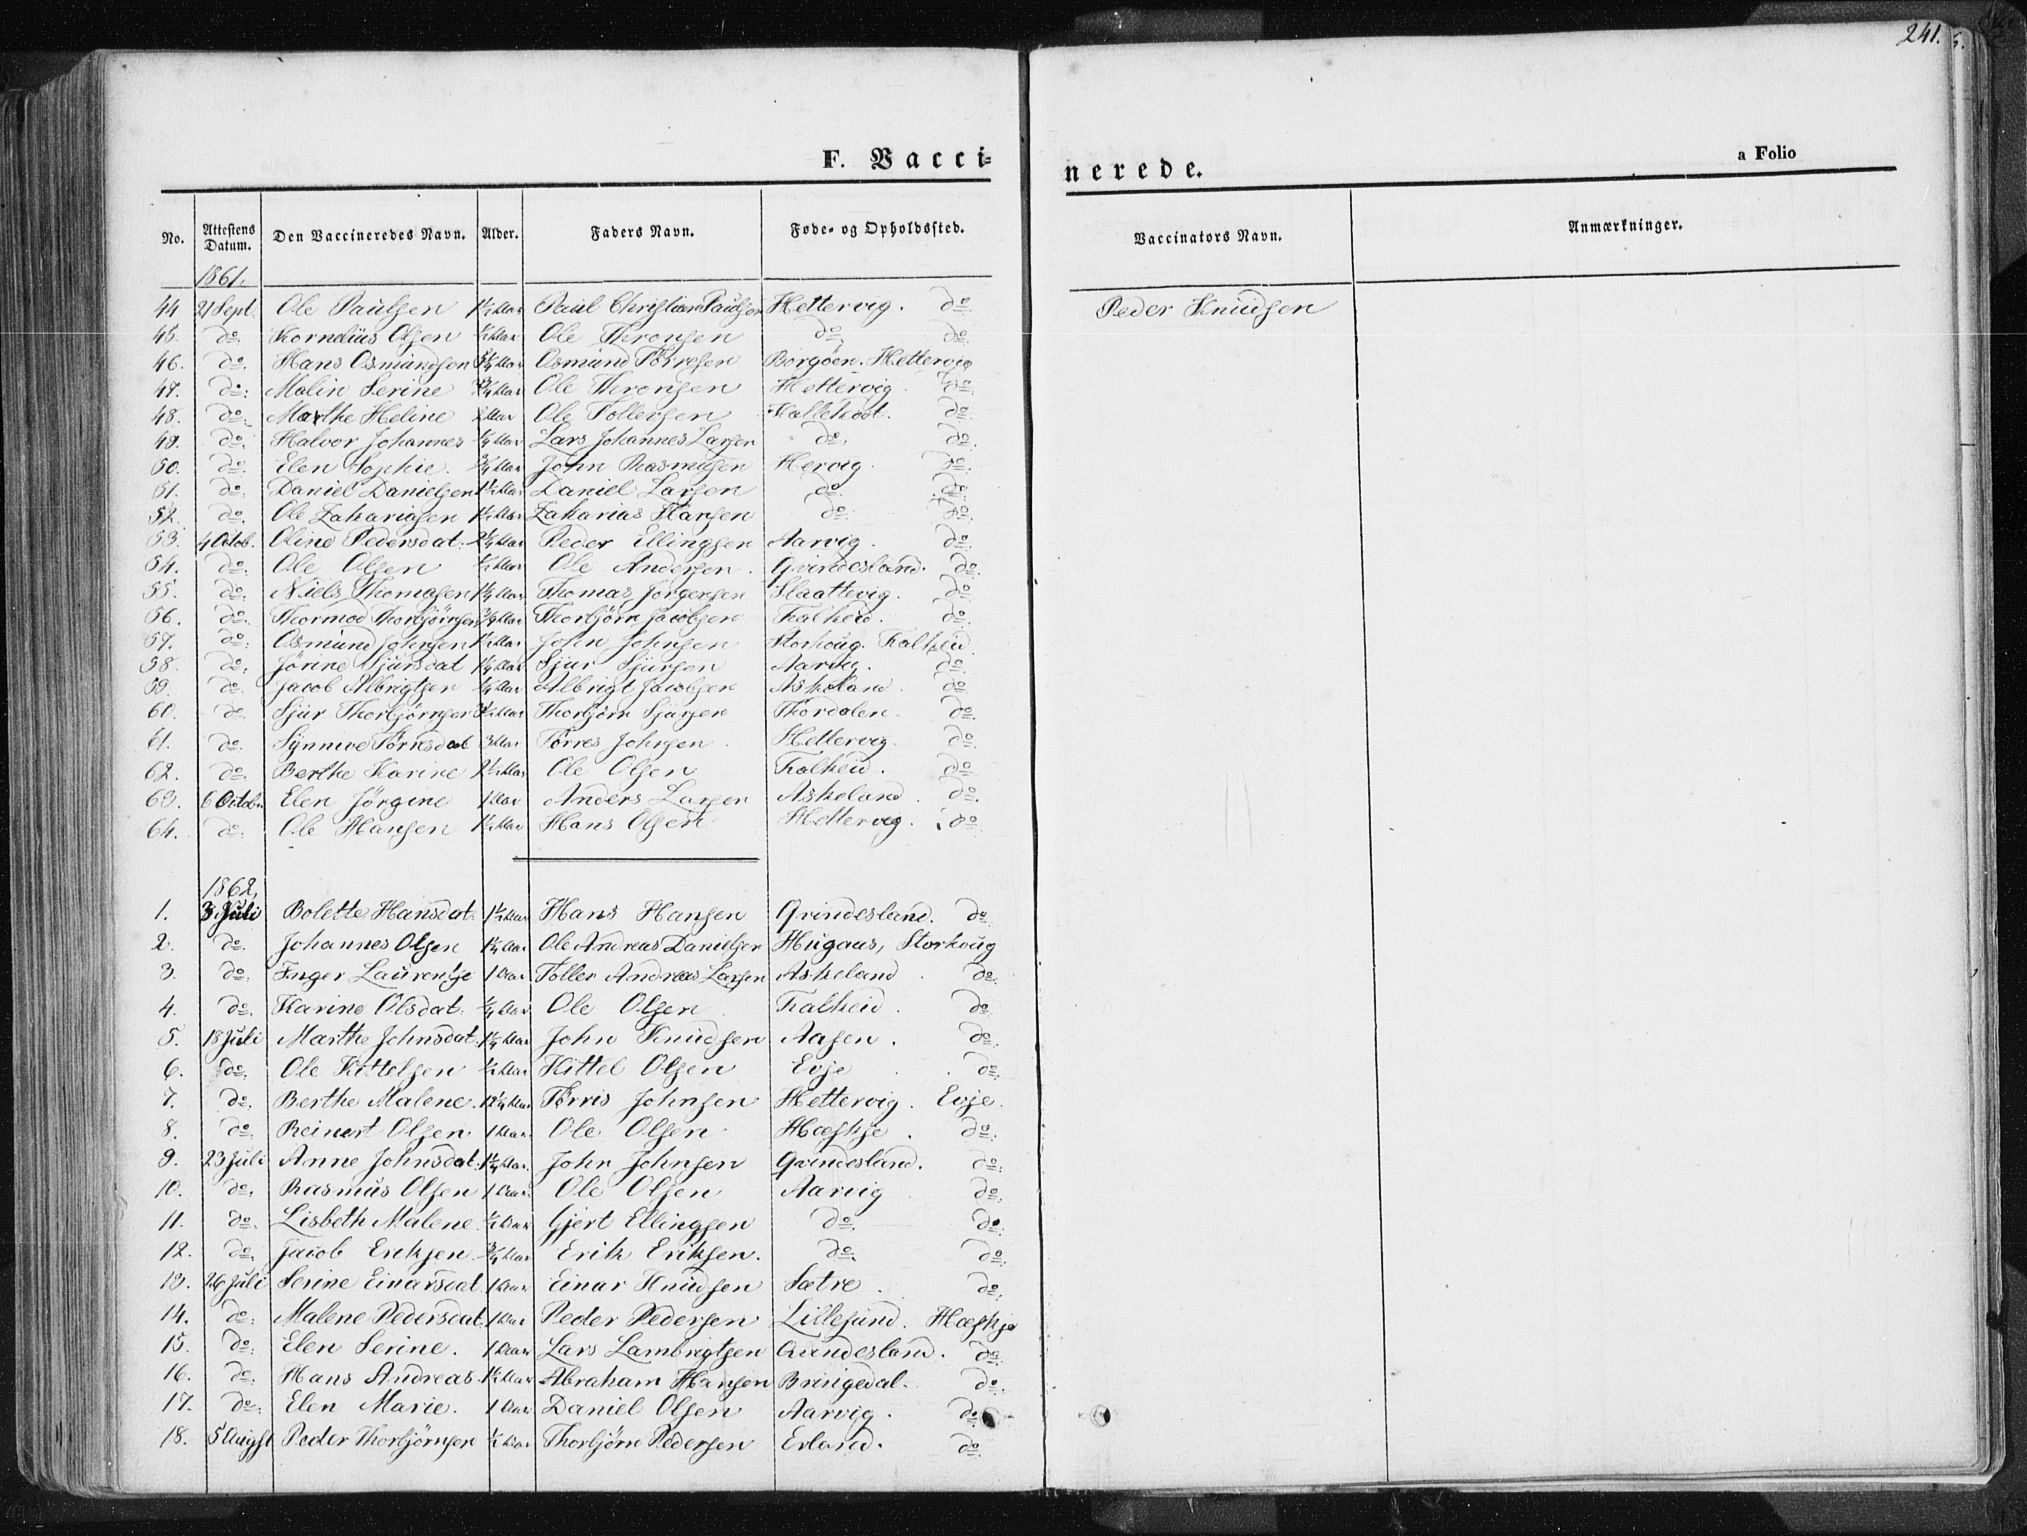 241.
F. Vacci=
nerede.
a Folio
No. Attestens Datum. Den Vaccineredes Navn. Alder. Faders Navn. Føde- og Opholdssted. Vaccinators Navn. Anmærkninger.
1861.
44 21 Sept. Ole Paulsen 1½ Aar Paul Christian Paulsen Hettervig. do Peder Knudsen
45. do. Kornelius Olsen ½ Aar Ole Thronsen do do
46. do. Hans Osmundsen Aar Osmund Törresen Borgöen. Hettervig
47. do: Malin Serine Aar Ole Thronsen Hettervig do.
48. do: Marthe Heline Aar Ole Tollersen do
49. do. Halvor Johannes ¼ Aar Lars Johannes Larsen do. do.
50. do: Elen Sophie. ¾ Aar John Rasmusen Hervig. do.
51. do: Daniel Danielsen 1½ Aar Daniel Larsen do. do.
52. do. Ole Zakariasen 1½ Aar Zakarias Hansen do do.
53. 4 Octob. Oline Pedersdat. 2¼ Aar Peder Ellingsen Aarvig. do
54. do: Ole Olsen ½ Aar Ole Andersen. Grindesland. do.
55. do: Niels Thomasen 1¼ Aar Thomas Jörgensen Slaattevig. do
56. do: Thormod Thorbjörnsen ¾ Aar Thorbjörn Jacobsen Kalheid. do.
57. do: Osmund Johnsen 1½ Aar John Johnsen Storhoug. Kalheid
58. do. Jörine Sjursdat 1¼ Aar Sjur Sjursen Aarvig. do
59. do. Jacob Albrigtsen ¼ Aar Albrigt Jacobsen Askeland. do
60. do. Sjur Thorbjörnsen Aar Thorbjörn Sjursen Thordalen. do.
61. do. Synnive Törresdat 3 Aar Törres Johnsen. Hettervig. do.
62. do. Berthe Karine 2½ Aar Ole Olsen Kalheid. do.
63. 6 Octob. Elen Jörgine 1 Aar Anders Larsen Askeland. do.
64. do: Ole Hansen 1½ Aar Hans Olsen Hettervig. do.
1862.
1. 3 Juli Bolette Hansdat. 1½ Aar Hans Hansen Grindesland. do
2. do. Johannes Olsen 1¼ Aar Ole Andreas Danielsen Hugaas, Storhoug
3. do: Inger Laurentje 1 Aar Toller Andreas Larsen Askeland. do.
4. do. Karine Olsdat. ¼ Aar Ole Olsen Kalheid. do
5. 18 Juli Marthe Johnsdat. 1¼ Aar John Knudsen Aasen. do.
6. do: Ole Kittelsen ½ Aar Kittel Olsen Evje. do.
7. do. Berthe Malene. Aar Törris Johnsen Hettervig. Evje.
8. do: Reinert Olsen 1 Aar. Ole Olsen Hæskje. do:
9. 23 Juli Anne Johnsdat. 1¼ Aar. John Johnsen Grindesland. do:
10. do. Rasmus Olsen 1 Aar. Ole Olsen Aarvig do.
11. do. Lisbeth Malene ½ Aar Gjert Ellingsen do. do.
12. do. Jacob Eriksen. ¾ Aar Erik Eriksen. do. do.
13. 26 Juli Serine Einarsdat 1 Aar Einar Knudsen Sætre. do.
14. do: Malene Pedersdat. 1 Aar Peder Pedersen Lillesund. Hæskje
15. do: Elen Serine. 1 Aar Lars Lambrigtsen Grindesland. do:
16. do: Hans Andreas. 1½ Aar Abraham Hansen Bringedal. do.
17. do: Elen Marie. 1 Aar Daniel Olsen Aarvig. do
18. 5 Augst Peder Thorbjörnsen ½ Aar Thorbjörn Pedersen Erland. do.